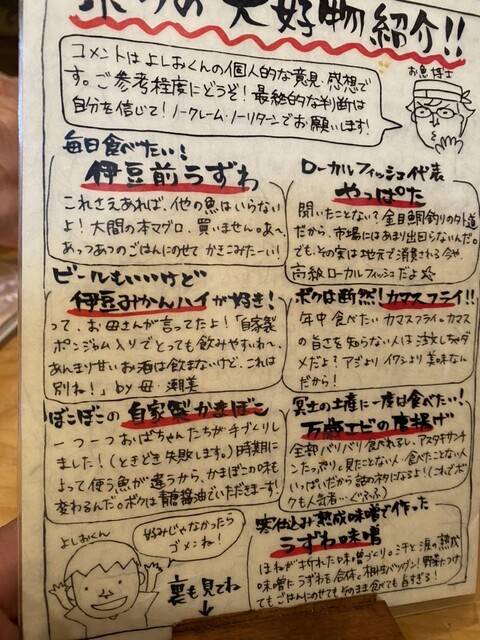 の大好物紹介!!
コメントはよしおくんの個人的な意見・感想で
す。ご参考程度にどうぞ!最終的な判断は
自分を信じて!ノークレーム・ノーリターンでお願いします!
お魚博士
毎日食べたい!
伊豆前うずわ
これさえあれば、他の魚はいらない
よ!大間の本マグロ、買いません。あ〜、
あっつあつのごはんにのせて かきこみたーい!
ローカルフィッシュ代表
やっぱた
聞いたことない?金目鯛釣りの外道
だから、市場にはあまり出回らないんだ。
でも、その実は地元で消費される今や、
高級ローカルフィッシュだよ
ビールもいいけど
伊豆みかんハイが好き!
って、お母さんが言ってたよ!「自家製
ポンジャム入りでとっても飲みやすいわ〜、
あんまり甘いお酒は飲まないけど、これは
別ね!」by 母・潮美
ボクは断然!カマスフライ!!
年中食べたいカマスフライ。カマス
の旨さを知らない人は注文しちゃダ
メだよ?アジよりイワシより美味なん
だから!
ぼこぼこの自家製かまぼこ
一つ一つおばちゃんたちが手づくりし
ました!(ときどき失敗します。)時期に
よって使う魚が違うから、かまぼこの味も
変わるんだ。ボクは青唐醤油でいただきまーす!
冥土の土産に一度は食べたい!
万歳エビの唐揚げ
全部バリバリ食べれるし、アスタキサンチ
ンたっぷり。見たことない人・食べたことない人
いっぱいだから話のネタになるよ!(これでボ
クも人気者…ぐふふ)
よしおくん
好みじゃなかったら
ゴメンね!
裏も見てね
寒仕込み熟成味噌で作った
うずわ味噌
ほねが折れた味噌づくり。汗と涙の熟成
味噌にうずわを合体。相性バツグン!野菜につけ
てもごはんにのせてもそのまま食べても旨すぎる!